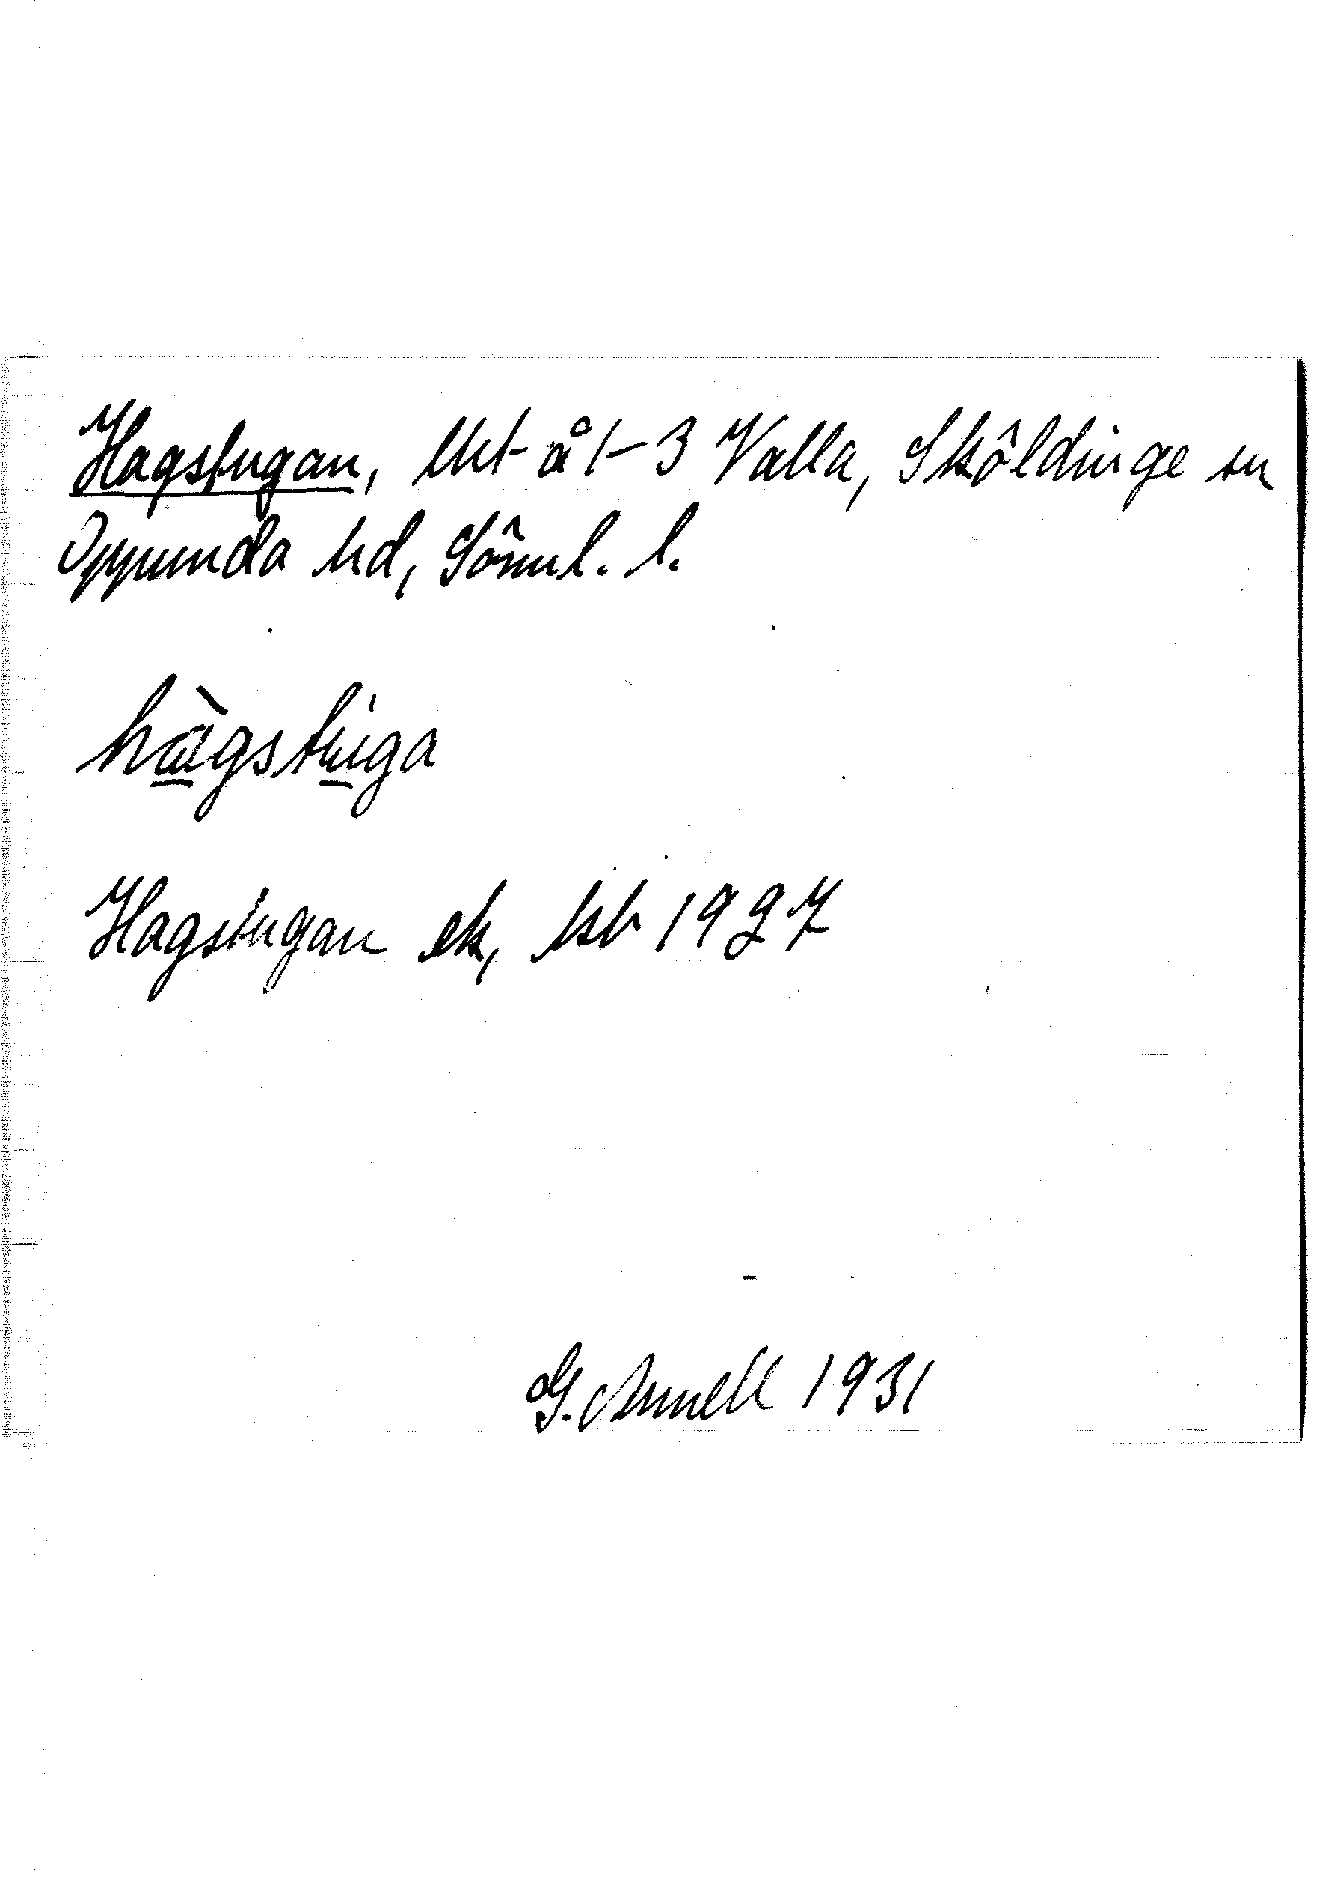 Hagstugan, lht å 1-3 Valla, Sköldinge sn
Oppunda hd, Sörml. l.
hàgstúga
Hagstugan ek, ksb 1927
G. Annell 1931